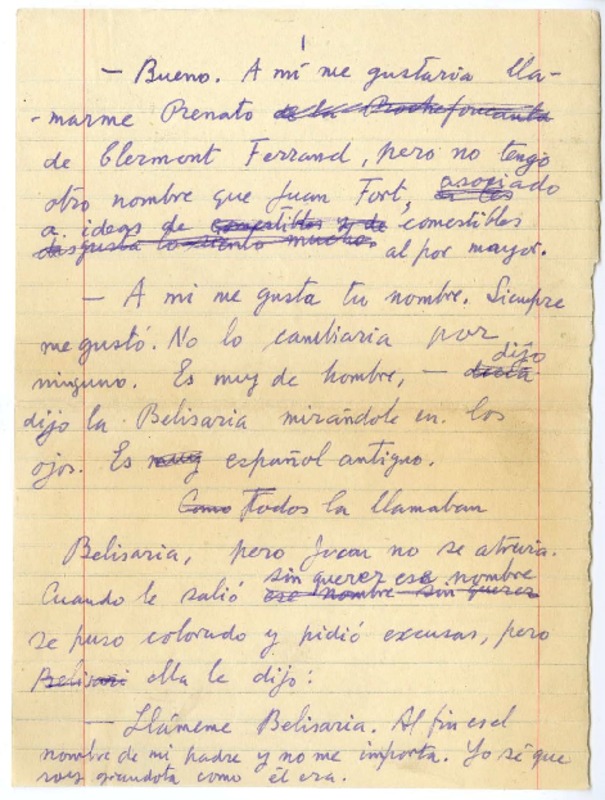 1
— Bueno. A mí me gustaria lla-
-marme Renato de la Rochefoucaulta
de Clermont Ferrand, pero no tengo
otro nombre que Juan Fort, asociado
a ideas de comestibles y de comestibles
disgusta lo siento mucho. al por mayor.
— A mi me gusta tu nombre. Siempre
me gustó. No lo cambiaria por
ninguno. Es muy de hombre, — decía dijo
dijo la Belisaria mirándole en los
ojos. Es muy español antiguo.
Como Todos la llamaban
Belisaria, pero Juan no se atrevia.
sin querer ese nombre
Cuando le salió ese nombre sin querer
se puso colorado y pidió excusas, pero
Belisari ella le dijo:
— Llámeme Belisaria. Al fin es el
nombre de mi padre y no me importa. Yo sé que
soy grandota como él era.